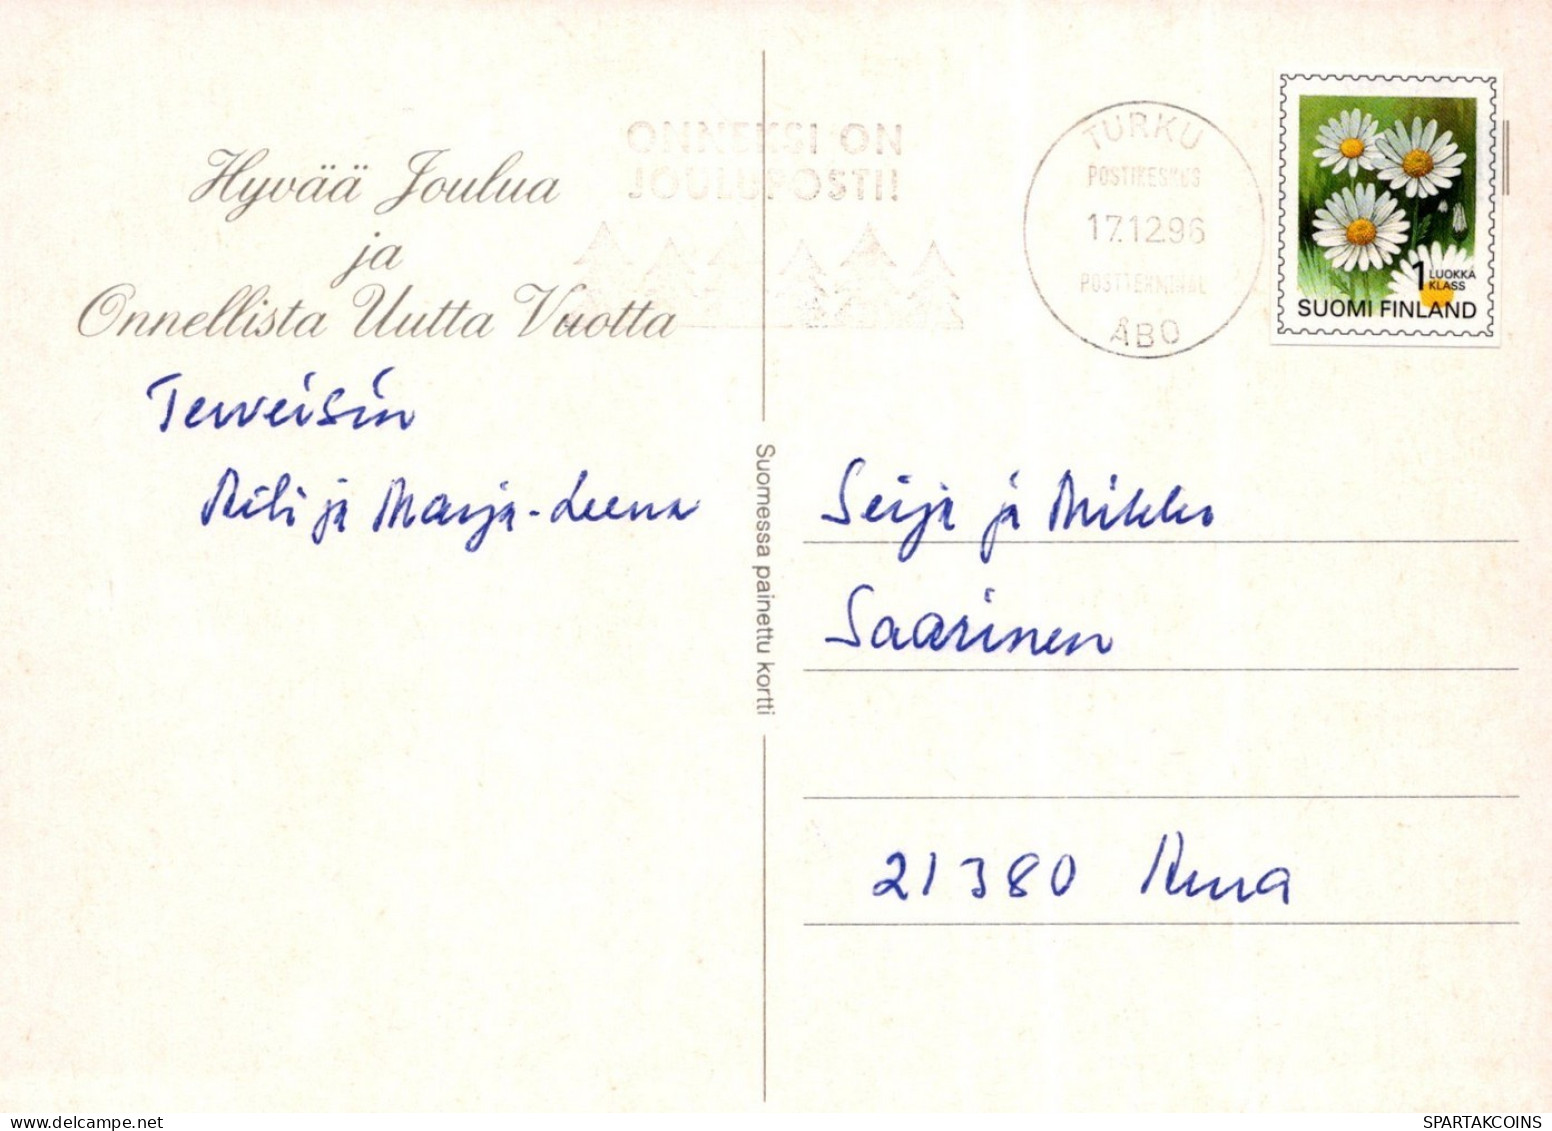 Hyvää Joulua
ja
Onnellista Uutta Vuotta
Terveisin
ja Marja-Leena
ONNEKSI ON
JOULUPOSTI!
TURKU
POSTIKESKUS
17.12.96
POSTTERMINAL
ÅBO
1 LUOKKA
KLASS
SUOMI FINLAND
Suomessa painettu kortti
Seija ja Mikko
Saarinen
21380 Aura
SPARTAKCOINS